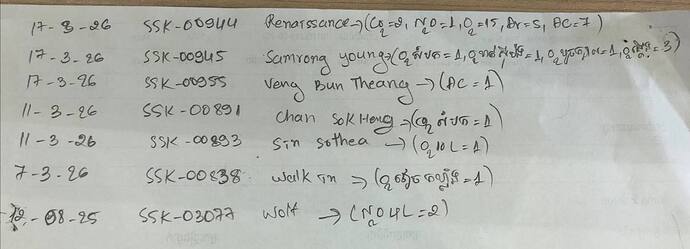 17-3-26 SSK-00944 Renaissance→(CO2=2, N2O=1, O2=15, Ar=5, AC=7)
17-3-26 SSK-00945 Samrong young→(O2 សំបក=1, O2
17-3-26 SSK-00955 Veng Bun Theang →(AC=1)
11-3-26 SSK-00891 Chan Sok Heng→(CO2 សំបក=1)
11-3-26 SSK-00893 Sin Sothea →(O2 10L=1)
7-3-26 SSK-00838 Walk in →(O2
12-08-25 SSK-03077 Wolf →(N2O 4L=2)